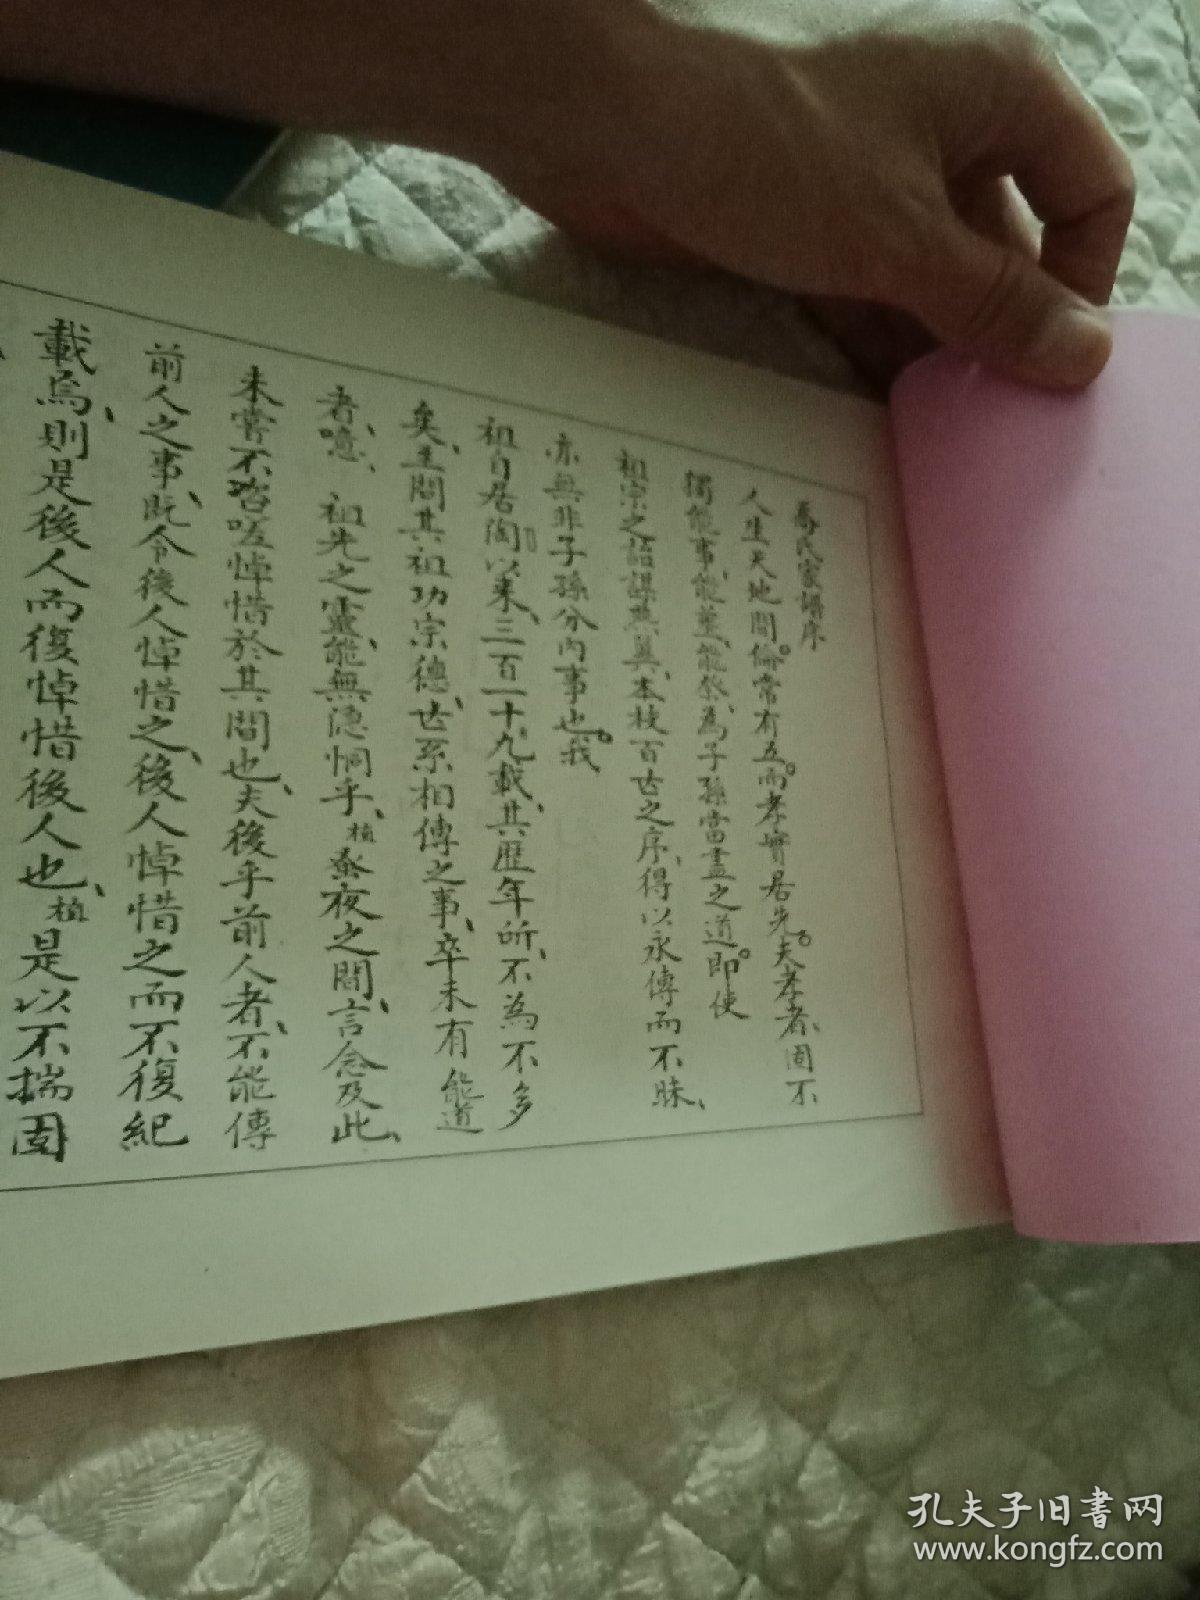 喬氏家譜序
人生天地間。倫常有五。而孝實居先。夫孝者、固不
獨能事、能葬、能祭、為子孫當盡之道。即使
祖宗之詒謀燕翼、本枝百世之序、得以永傳而不昧、
亦無非子孫分內事也。我、
祖自居陶以來、三百一十九載、其歷年所、不為不多
矣、至問其祖功宗德、世系相傳之事、卒未有能道
者、噫、祖先之靈、能無恫乎、植蚤夜之間、言念及此、
未嘗不咨嗟悼惜於其間也、夫後乎前人者、不能傳
前人之事、既令後人悼惜之、後人悼惜之而不復紀
載焉、則是後人而復悼惜後人也、植是以不揣固
孔夫子旧書网
www.kongfz.com